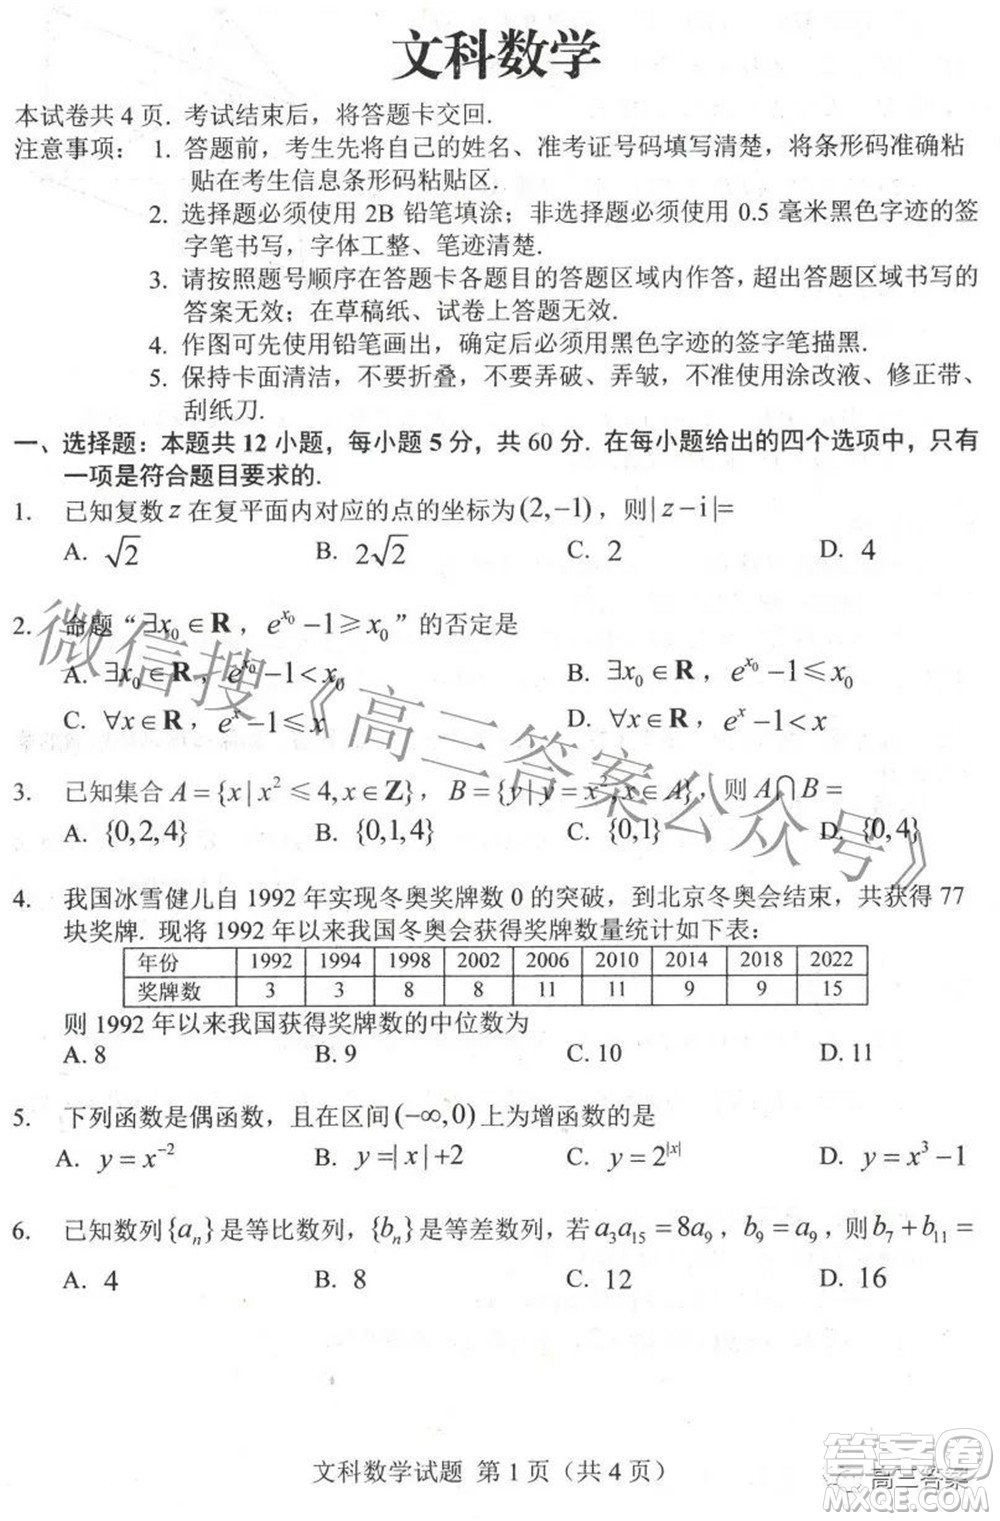 文科数学
本试卷共 4 页. 考试结束后，将答题卡交回.
注意事项： 1. 答题前，考生先将自己的姓名、准考证号码填写清楚，将条形码准确粘
贴在考生信息条形码粘贴区.
2. 选择题必须使用 2B 铅笔填涂；非选择题必须使用 0.5 毫米黑色字迹的签
字笔书写，字体工整、笔迹清楚.
3. 请按照题号顺序在答题卡各题目的答题区域内作答，超出答题区域书写的
答案无效；在草稿纸、试卷上答题无效.
4. 作图可先使用铅笔画出，确定后必须用黑色字迹的签字笔描黑.
5. 保持卡面清洁，不要折叠，不要弄破、弄皱，不准使用涂改液、修正带、
刮纸刀.
一、选择题：本题共 12 小题，每小题 5 分，共 60 分. 在每小题给出的四个选项中，只有
一项是符合题目要求的.
1. 已知复数 z 在复平面内对应的点的坐标为 (2,−1)，则 | z − i |=
A. √2 B. 2√2 C. 2 D. 4
2. 命题“∃x₀ ∈ R，e^{x₀} −1 ⩾ x₀”的否定是
A. ∃x₀ ∈ R，e^{x₀} −1 < x₀ B. ∃x₀ ∈ R，e^{x₀} −1 ⩽ x₀
C. ∀x ∈ R，e^x −1 ⩽ x D. ∀x ∈ R，e^x −1 < x
3. 已知集合 A = {x | x² ⩽ 4, x ∈ Z}，B = {y | y = x², x ∈ A}，则 A∩B =
A. {0,2,4} B. {0,1,4} C. {0,1} D. {0,4}
4. 我国冰雪健儿自 1992 年实现冬奥奖牌数 0 的突破，到北京冬奥会结束，共获得 77
块奖牌. 现将 1992 年以来我国冬奥会获得奖牌数量统计如下表：
年份 1992 1994 1998 2002 2006 2010 2014 2018 2022
奖牌数 3 3 8 8 11 11 9 9 15
则 1992 年以来我国获得奖牌数的中位数为
A. 8 B. 9 C. 10 D. 11
5. 下列函数是偶函数，且在区间 (−∞,0) 上为增函数的是
A. y = x^{−2} B. y =| x | +2 C. y = 2^{|x|} D. y = x³ − 1
6. 已知数列 {aₙ} 是等比数列，{bₙ} 是等差数列，若 a₃a₁₅ = 8a₉，b₉ = a₉，则 b₇ + b₁₁ =
A. 4 B. 8 C. 12 D. 16
微信搜《高三答案公众号》
文科数学试题 第 1 页（共 4 页）
答案圈
高三答案
MXQE.COM